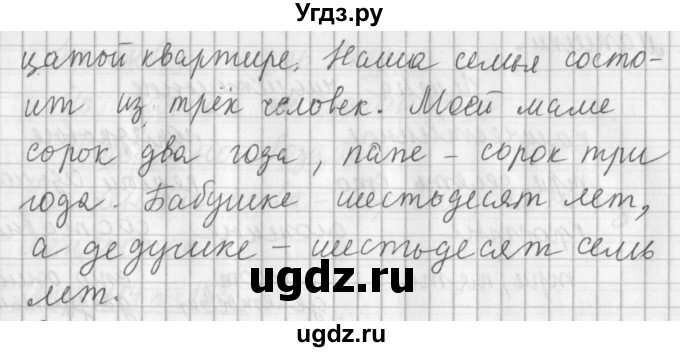 Угдз.ру
цатой квартире. Наша семья состо-
ит из трёх человек. Моей маме
сорок два года, папе – сорок три
года. Бабушке шестьдесят лет,
а дедушке – шестьдесят семь
лет.
ugdz.ru
ugdz.ru